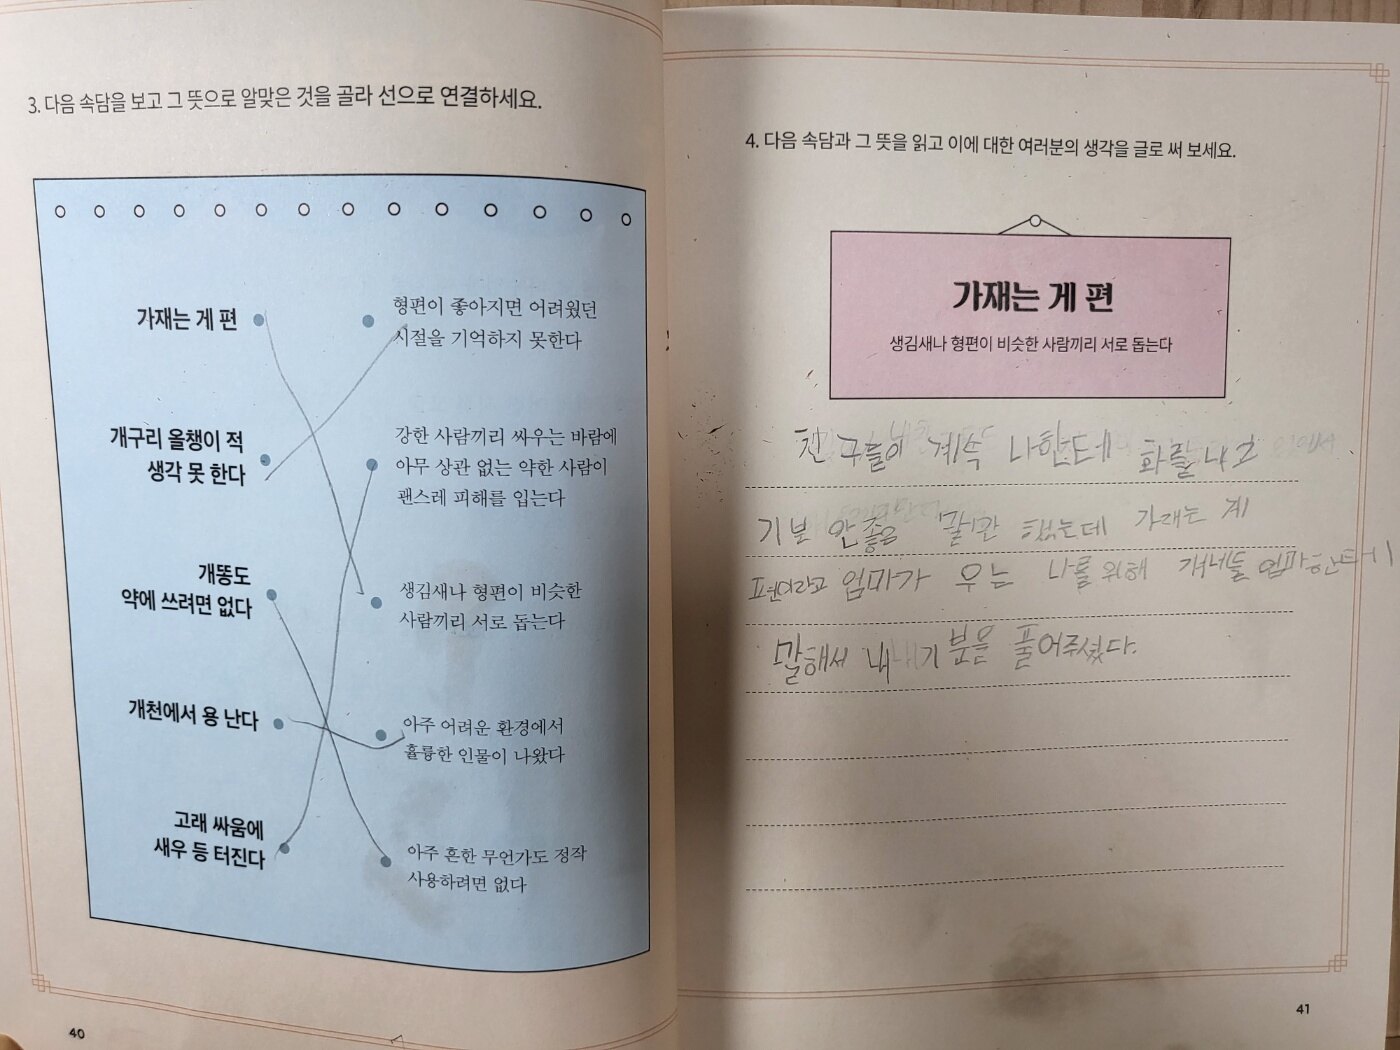 3. 다음 속담을 보고 그 뜻으로 알맞은 것을 골라 선으로 연결하세요.
가재는 게 편
개구리 올챙이 적
생각 못 한다
개똥도
약에 쓰려면 없다
개천에서 용 난다
고래 싸움에
새우 등 터진다
형편이 좋아지면 어려웠던
시절을 기억하지 못한다
강한 사람끼리 싸우는 바람에
아무 상관 없는 약한 사람이
괜스레 피해를 입는다
생김새나 형편이 비슷한
사람끼리 서로 돕는다
아주 어려운 환경에서
훌륭한 인물이 나왔다
아주 흔한 무언가도 정작
사용하려면 없다
40
4. 다음 속담과 그 뜻을 읽고 이에 대한 여러분의 생각을 글로 써 보세요.
가재는 게 편
생김새나 형편이 비슷한 사람끼리 서로 돕는다
친구들이 계속 나한테 화를 내고
기분 안좋은 했는데 가재는 게
편이라고 엄마가 우는 나를 위해 걔네들 엄마한테
말해서 내 기분을 풀어주셨다.
41